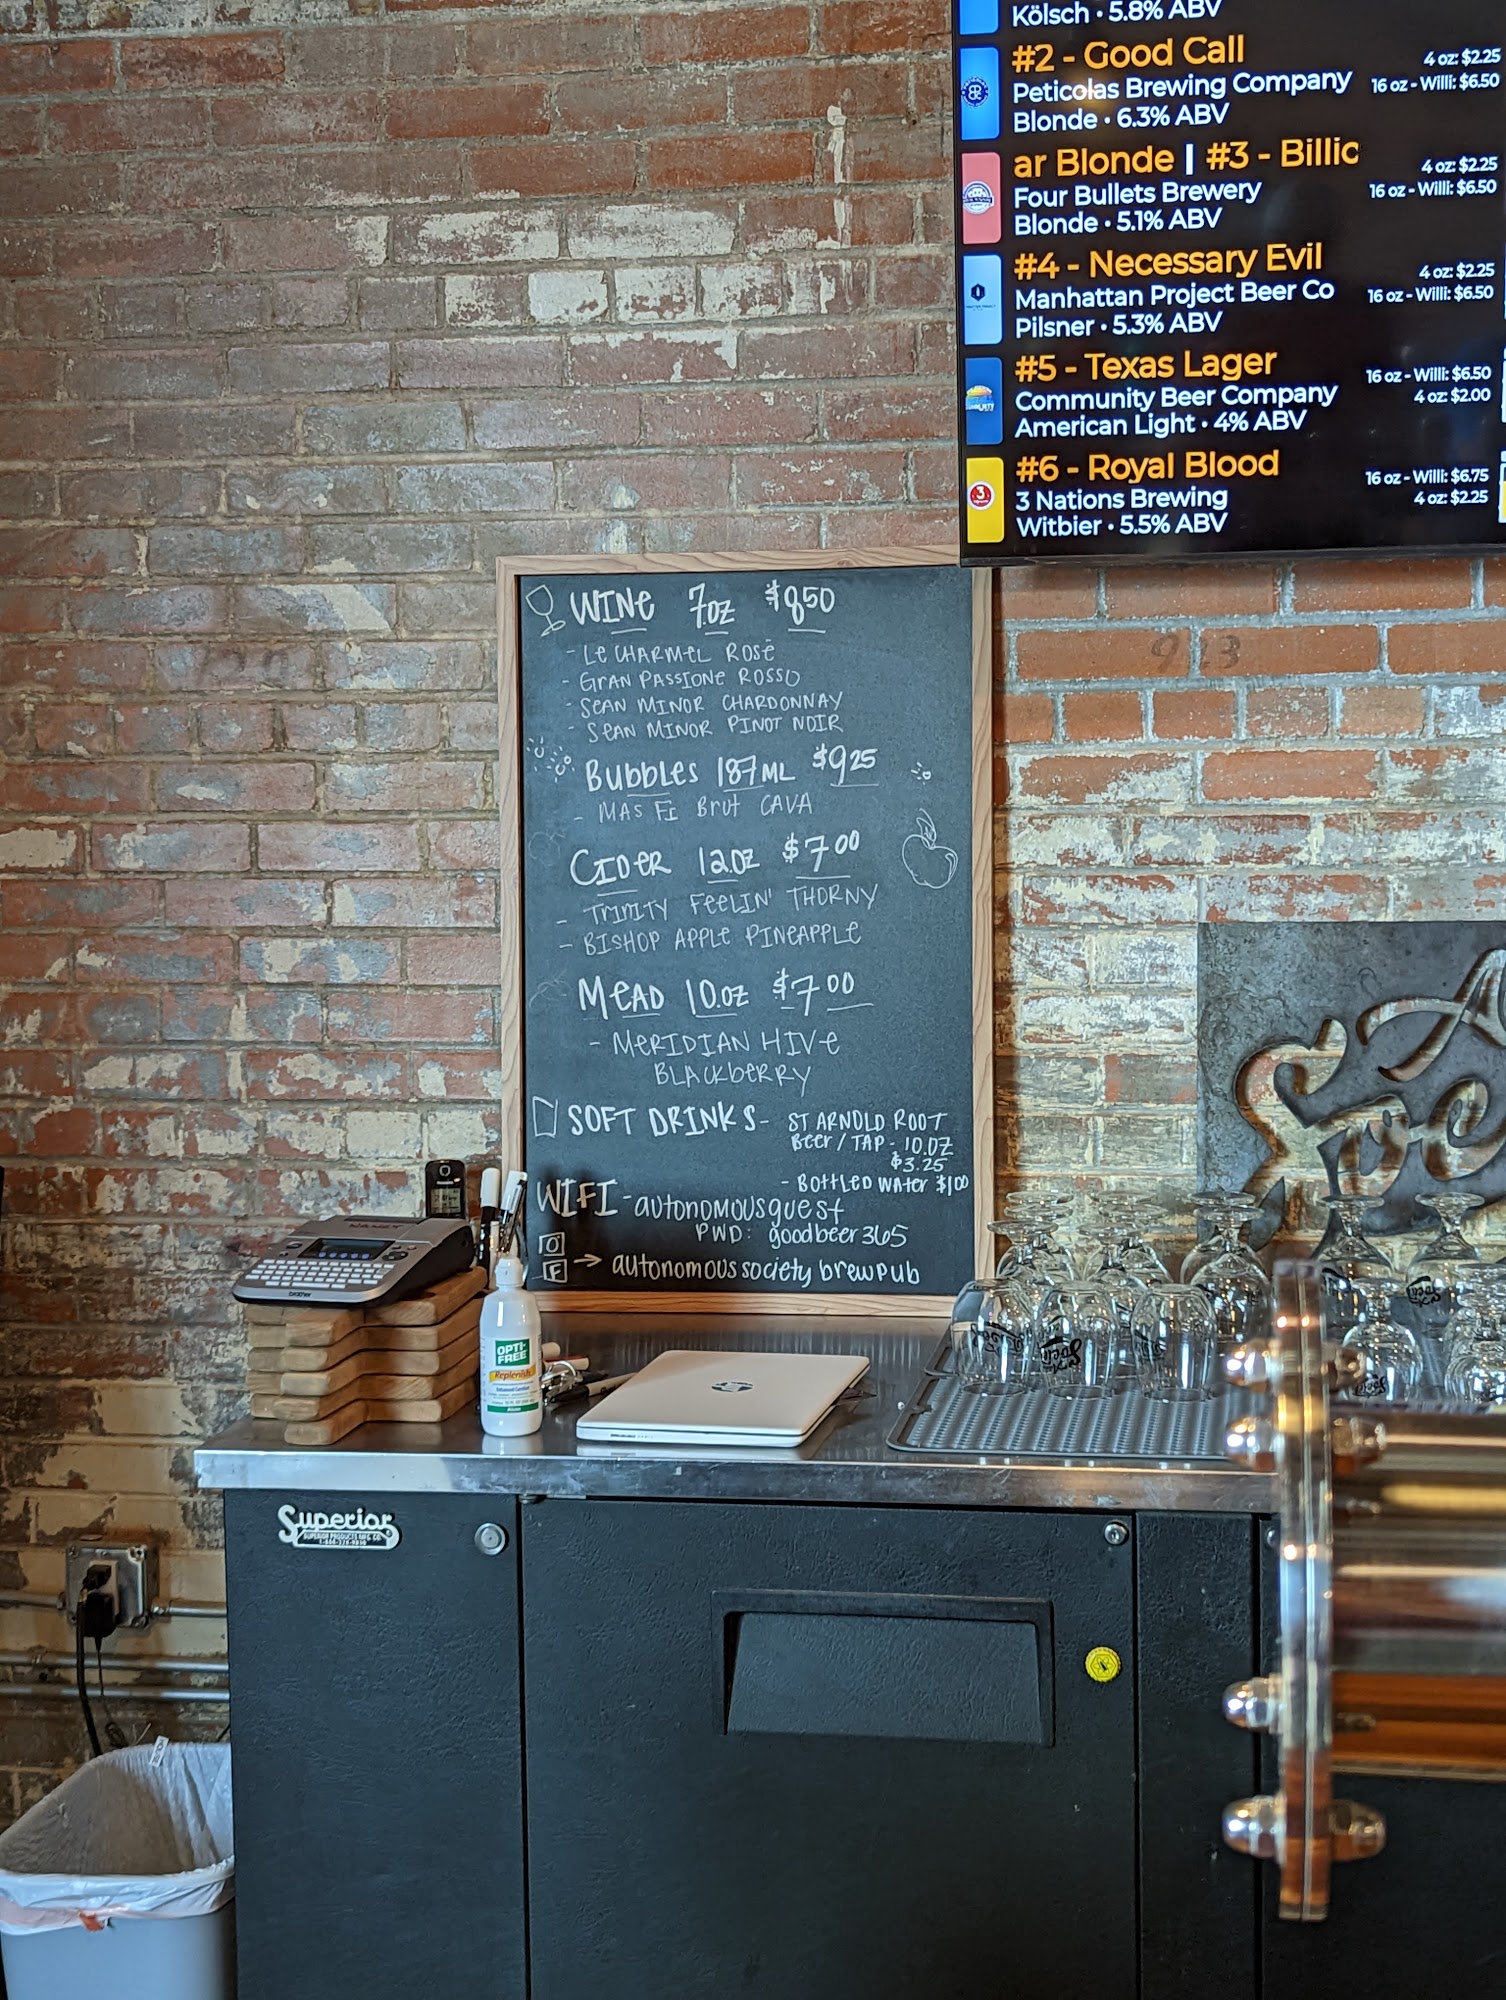 Kölsch • 5.8% ABV
#2 - Good Call
4 oz: $2.25
Peticolas Brewing Company
16 oz - Willi: $6.50
Blonde • 6.3% ABV
ar Blonde | #3 - Billic
4 oz: $2.25
Four Bullets Brewery
16 oz - Willi: $6.50
Blonde • 5.1% ABV
#4 - Necessary Evil
4 oz: $2.25
Manhattan Project Beer Co
16 oz - Willi: $6.50
Pilsner • 5.3% ABV
#5 - Texas Lager
16 oz - Willi: $6.50
Community Beer Company
4 oz: $2.00
American Light • 4% ABV
#6 - Royal Blood
16 oz - Willi: $6.75
3 Nations Brewing
4 oz: $2.25
Witbier • 5.5% ABV
3
WINE 7.oz $8.50
- Le CHARMEL ROSé
- GRAN PASSIONE ROSSO
- SEAN MINOR CHARDONNAY
- SEAN MINOR PINOT NOIR
BUBBLES 187ML $9.25
- MAS FI BRUT CAVA
CIDER 12.oz $7.00
- TRINITY FEELIN' THORNY
- BISHOP APPLE PINEAPPLE
MEAD 10.oz $7.00
- MERIDIAN HIVE
BLACKBERRY
SOFT DRINKS - ST ARNOLD ROOT
BEER / TAP - 10.OZ
$3.25
- BOTTLED WATER $1.00
WIFI - autonomousguest
PWD: goodbeer365
F → autonomoussocietybrewpub
923
brother
OPTI-FREE
Replenish
Superior
SUPERIOR PRODUCTS MFG. CO.